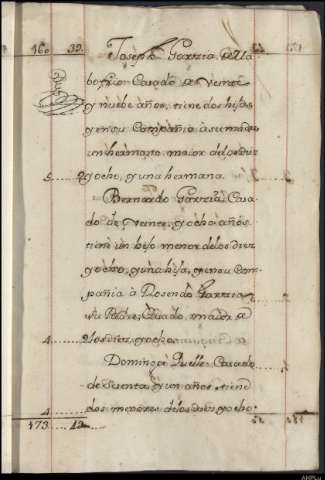 160 39. Joseph Garzia de la
bor, Casado de veinte
y nuebe años, tiene dos hijas
y en su Compañia à su madre
un hermano maior de los diez
5 y ocho, y una hermana.
Bernardo Garzia Casa
do de veinte, y ocho años,
tiene un hijo menor de los diez
y ocho, y una hija, y en su Com
pañia à Rosendo Garzia
su Padre, Casado, maior de
4 los diez y ocho
Domingo Casado
de sesenta, y un años, tiene
4 dos menores de los diez y ocho.
173 42
AHPLu